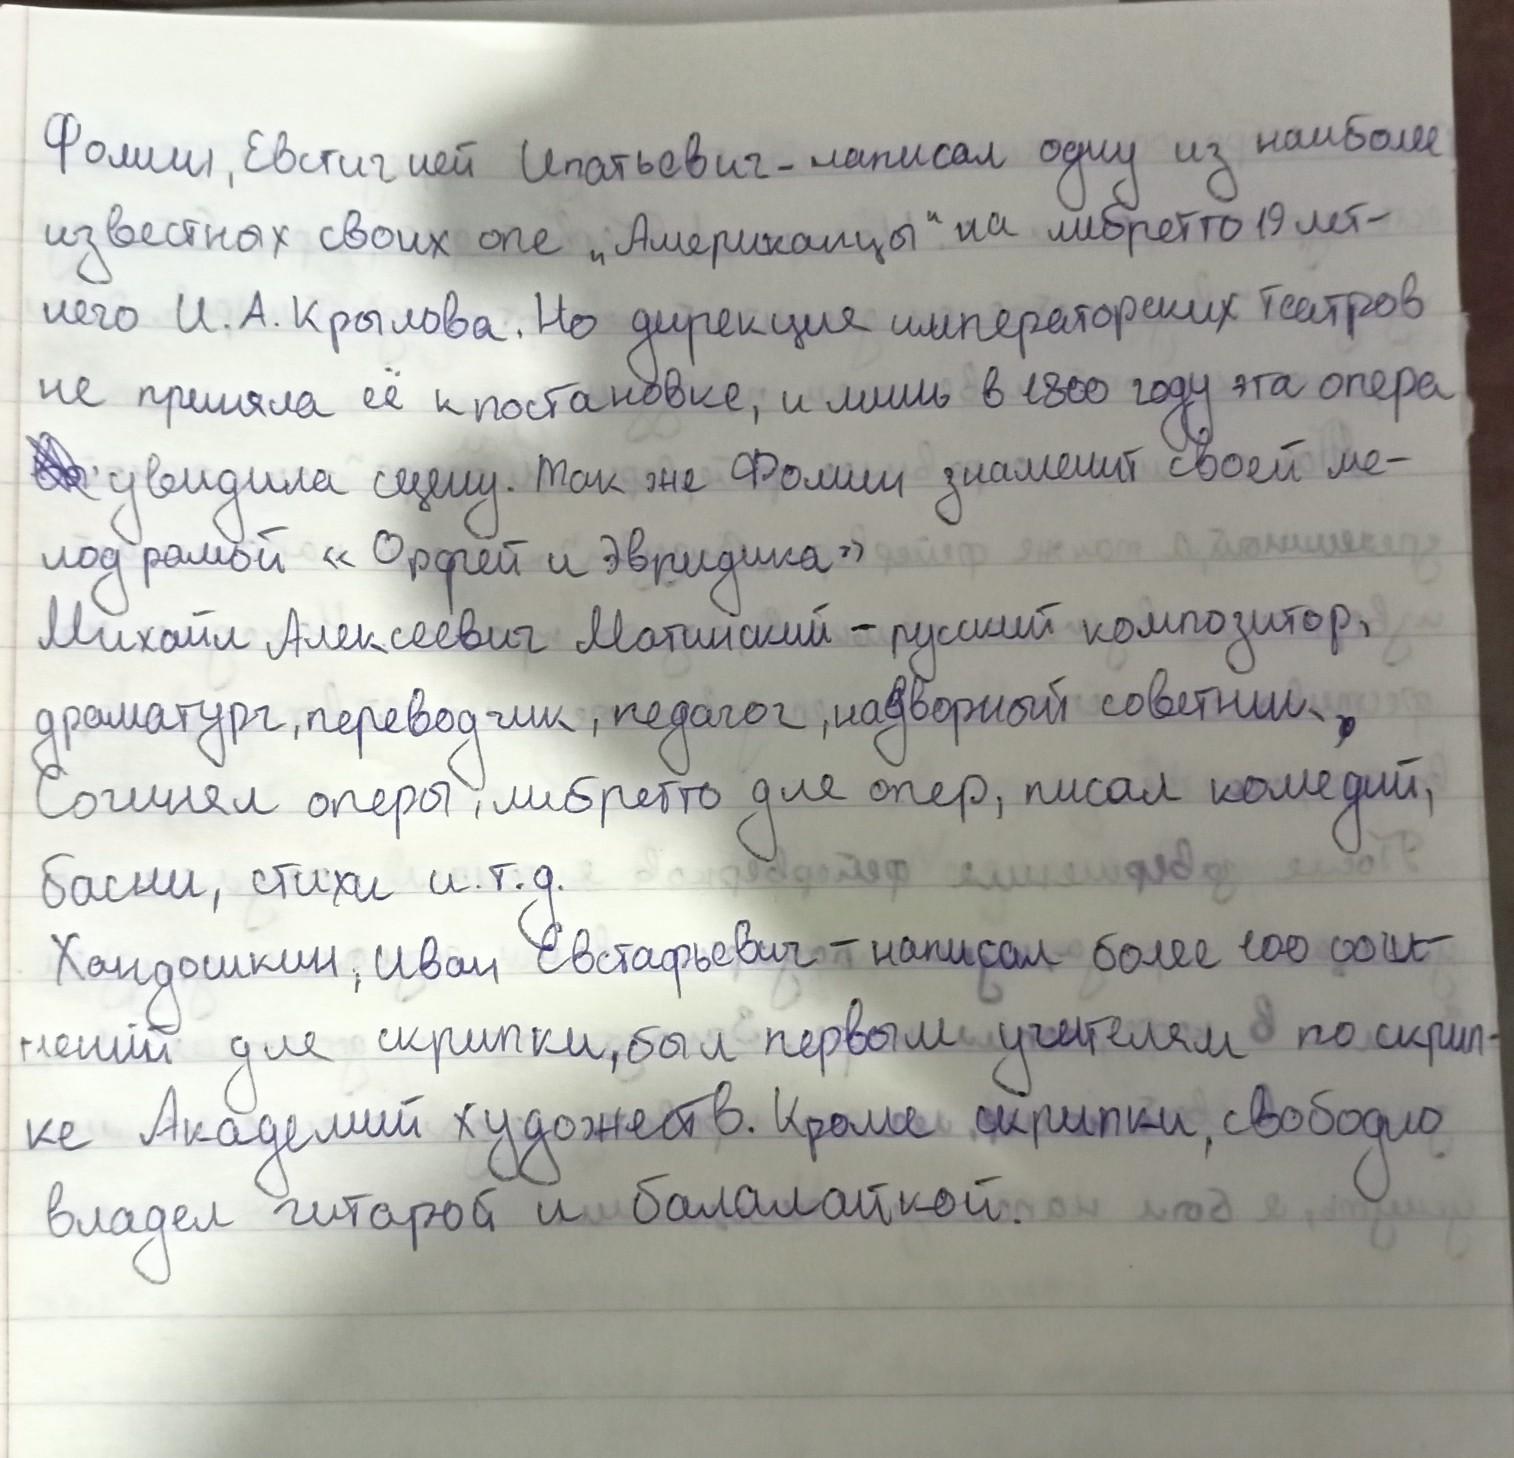 Фомин, Евстигней Ипатьевич - написал одну из наиболее
известных своих опе „Американцы“ на либретто 19 лет-
него И.А. Крылова. Но дирекция императорских театров
не приняла её к постановке, и лишь в 1800 году эта опера
увидила сцену. Так же Фомин знаменит своей ме-
лодрамой « Орфей и Эвридика»
Михайл Алексеевич Матинский - русский композитор,
драматург, переводчик, педагог, надворный советник,
Сочинял оперы, либретто для опер, писал комедий,
басни, стихи и.т.д.
Хандошкин, Иван Евстафьевич - написал более 100 сочи-
нений для скрипки, был первым учителям по скрип-
ке Академий художеств. Кроме скрипки, свободно
владел гитарой и балалайкой.